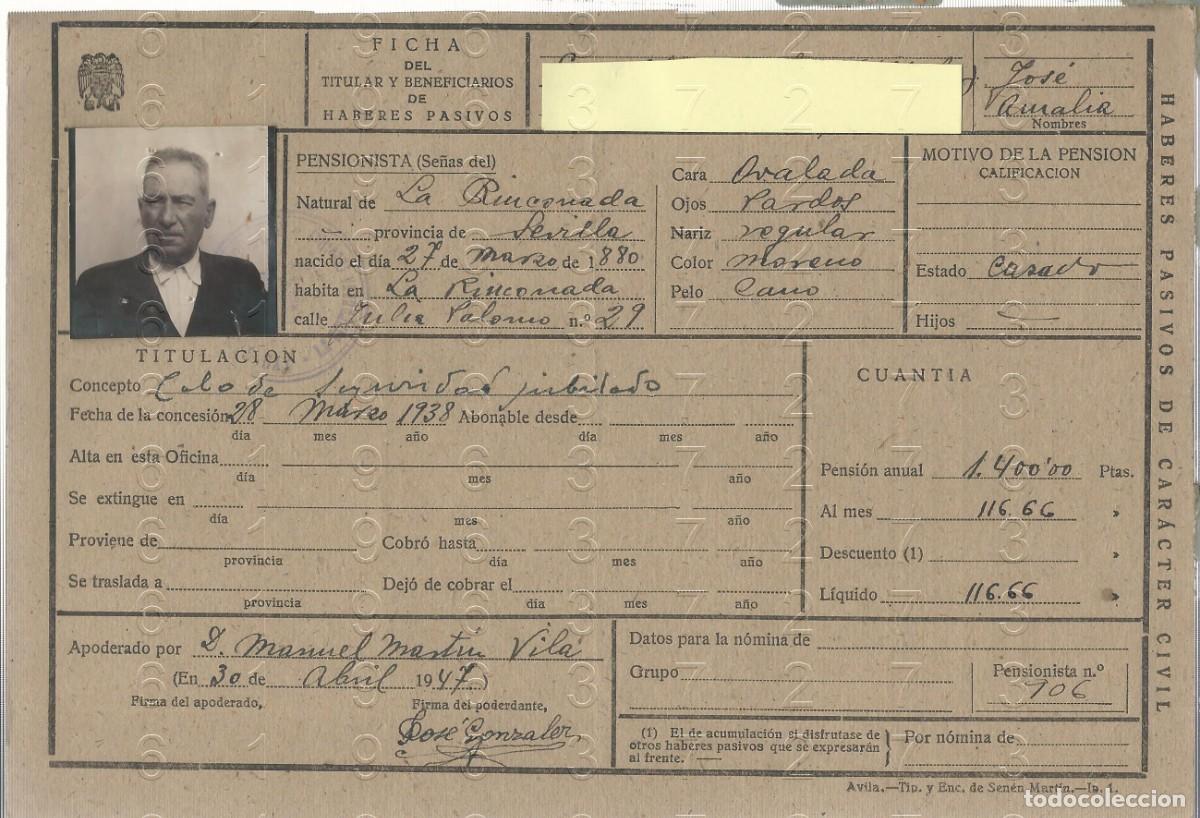 FICHA
DEL
TITULAR Y BENEFICIARIOS
DE
HABERES PASIVOS
José
Amalia
Nombres
PENSIONISTA (Señas del)
Natural de La Rinconada
provincia de Sevilla
nacido el día 27 de Marzo de 1880
habita en La Rinconada
calle Julia Palomo n.º 29
Cara Ovalada
Ojos Pardos
Nariz regular
Color moreno
Pelo Cano
MOTIVO DE LA PENSION
CALIFICACION
Estado Casado
Hijos
HABERES PASIVOS DE CARÁCTER CIVIL
TITULACION
Concepto Cabo de Seguridad jubilado
Fecha de la concesión 28 Marzo 1938 Abonable desde
día mes año día mes año
Alta en esta Oficina
día mes año
Se extingue en
día mes año
Proviene de Cobró hasta
provincia día mes año
Se traslada a Dejó de cobrar el
provincia día mes año
CUANTIA
Pensión anual 1.400'00 Ptas.
Al mes 116.66 »
Descuento (1) »
Líquido 116.66 »
Apoderado por D. Manuel Martín Vilá
(En 30 de Abril 1947)
Firma del apoderado, Firma del poderdante,
José Gonzalez
Datos para la nómina de
Grupo
Pensionista n.º
906
(1) El de acumulación si disfrutase de
otros haberes pasivos que se expresarán
al frente. —
Por nómina de
Avila.—Tip. y Enc. de Senén Martín.—Ip. 1.
todocoleccion